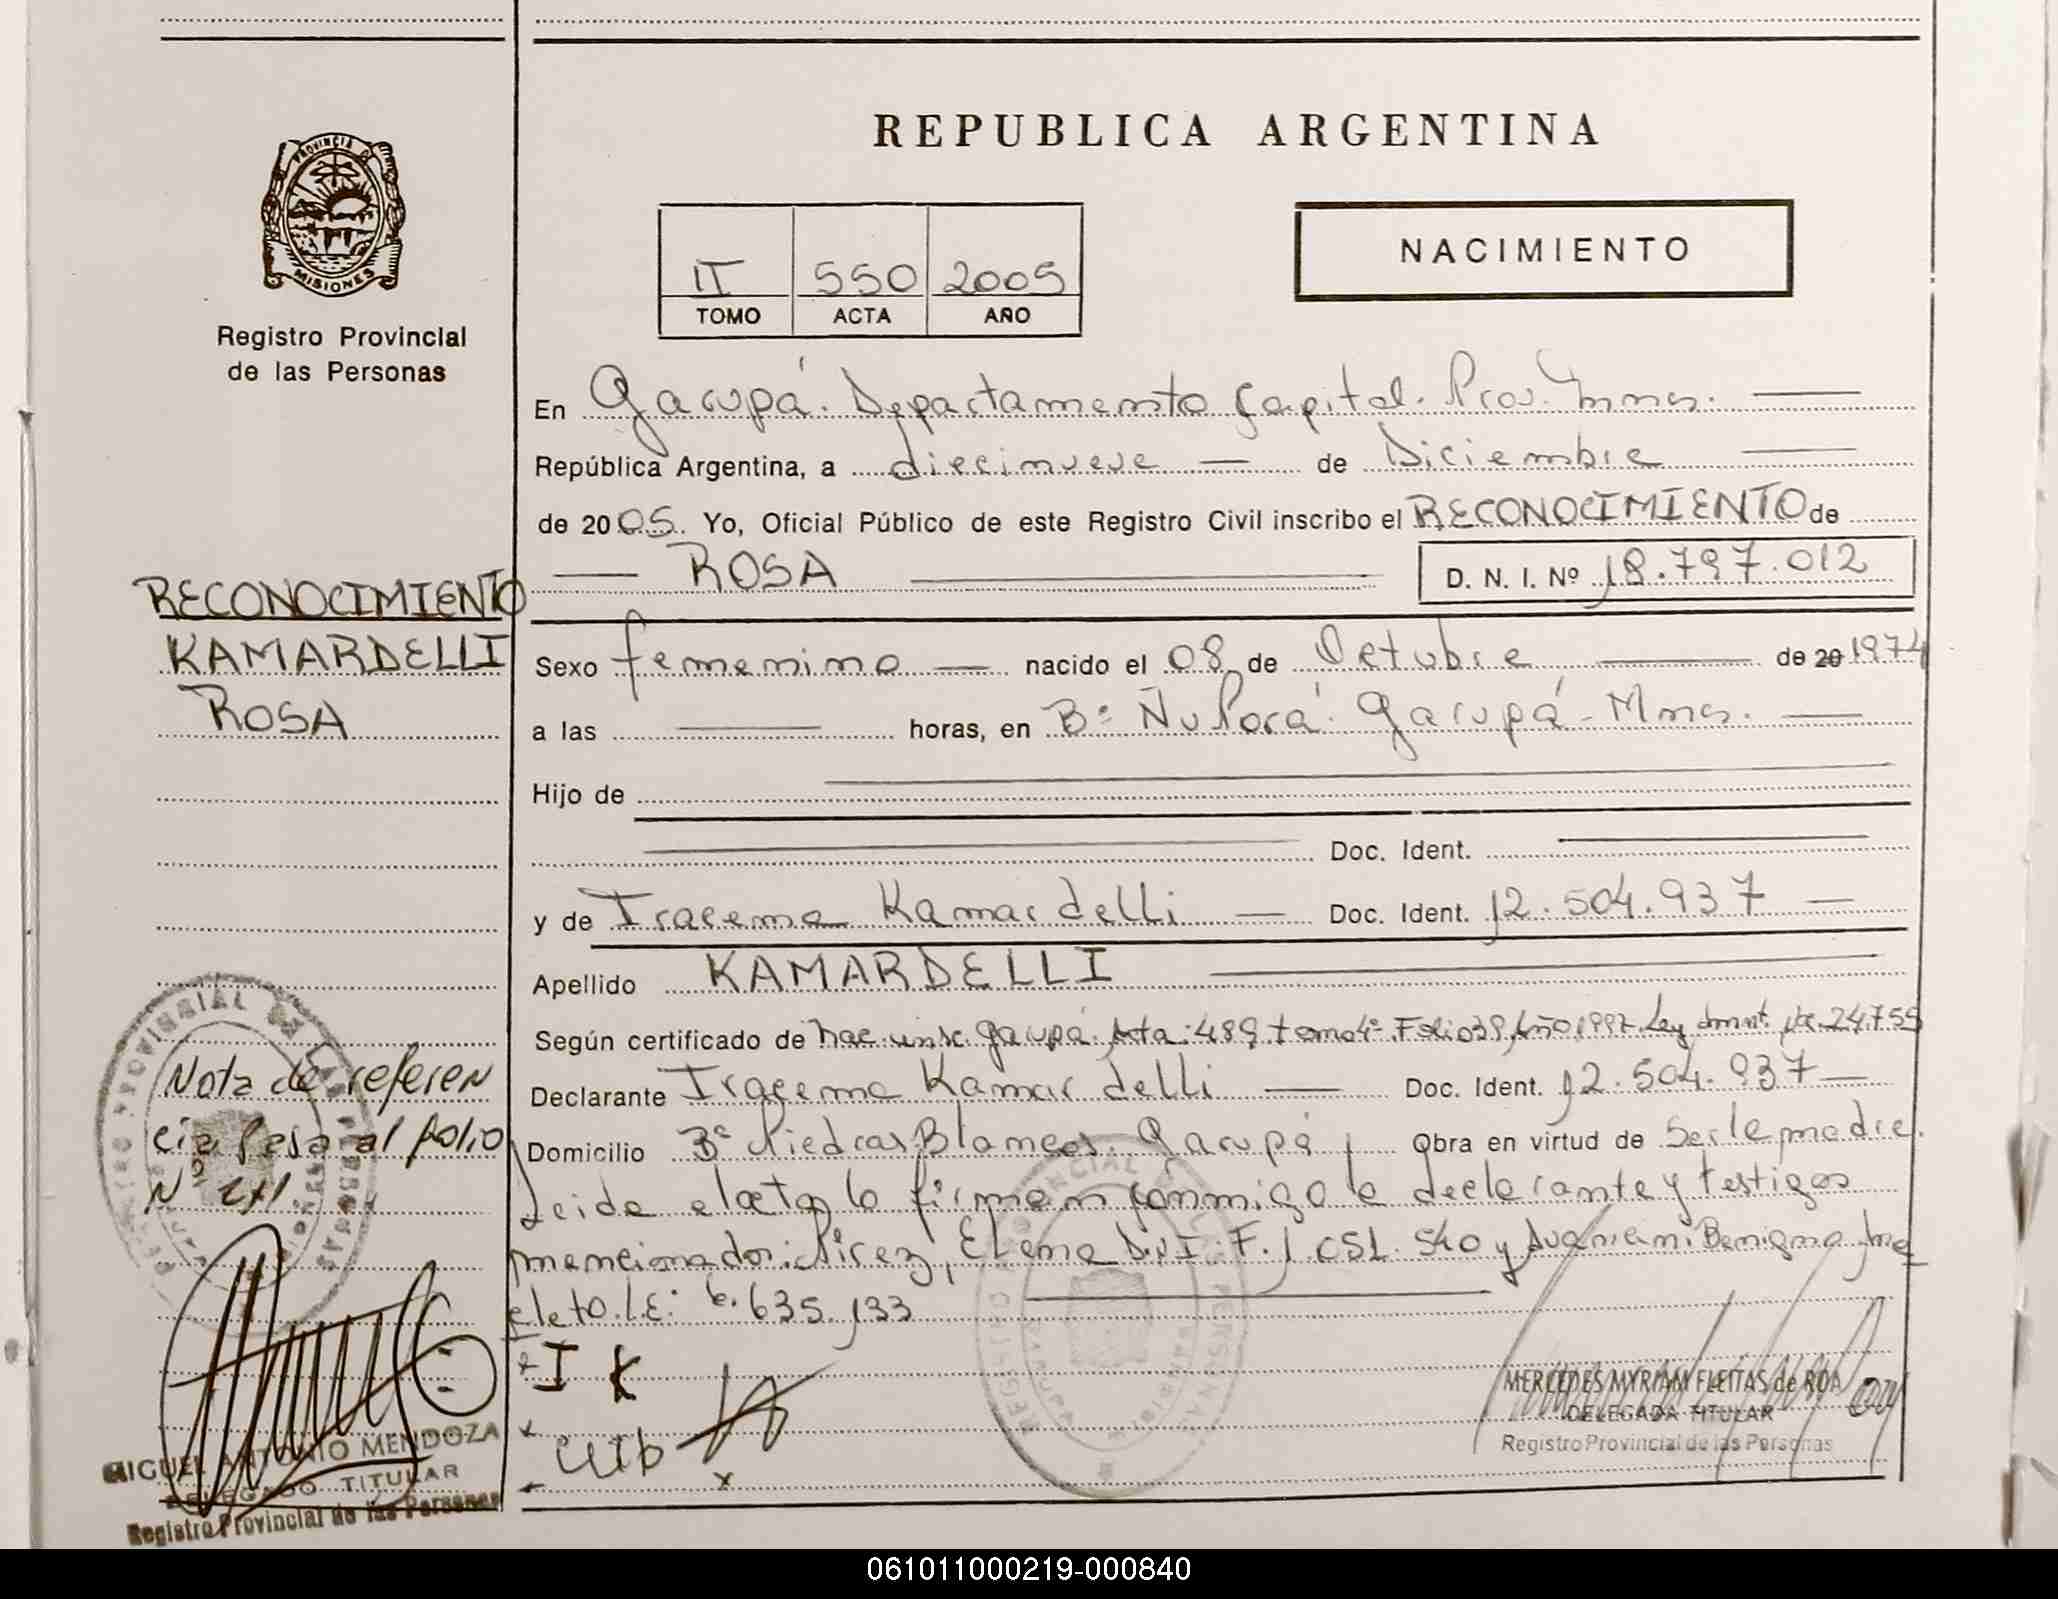 REPUBLICA ARGENTINA
PROVINCIA D
MISIONES
Registro Provincial
de las Personas
NACIMIENTO
II 550 2005
TOMO ACTA AÑO
En Garupá. Departamento Capital. Prov. Mnes.
República Argentina, a diecinueve de Diciembre
de 2005. Yo, Oficial Público de este Registro Civil inscribo el RECONOCIMIENTO de
ROSA D. N. I. Nº 18.797.012
RECONOCIMIENTO
KAMARDELLI
ROSA
Sexo femenino nacido el 08 de Octubre de 20 1974
a las horas, en Bº Ñu Porá. Garupá - Mnes.
Hijo de
Doc. Ident.
y de Iracema Kamardelli Doc. Ident. 12.504.937
Apellido KAMARDELLI
Según certificado de nac. Acta: 489 tomo 4º Folio 39 Año 1997. Ley 24.755
Declarante Iracema Kamardelli Doc. Ident. 12.504.937
Domicilio Bº Piedras Blancas. Garupá Obra en virtud de Ser la madre.
Leida el acta la firman conmigo la declarante y testigos
mencionados: Elena D.N.I. F. 1 CSL. 540 y Benigno
L.E: 6.635.133
Nota de referen
cia pasa al folio
Nº
I K
MIGUEL ANTONIO MENDOZA
DELEGADO TITULAR
Registro Provincial de las Personas
MERCEDES MYRIAM FLEITAS de ROA
DELEGADA TITULAR
Registro Provincial de las Personas
061011000219-000840